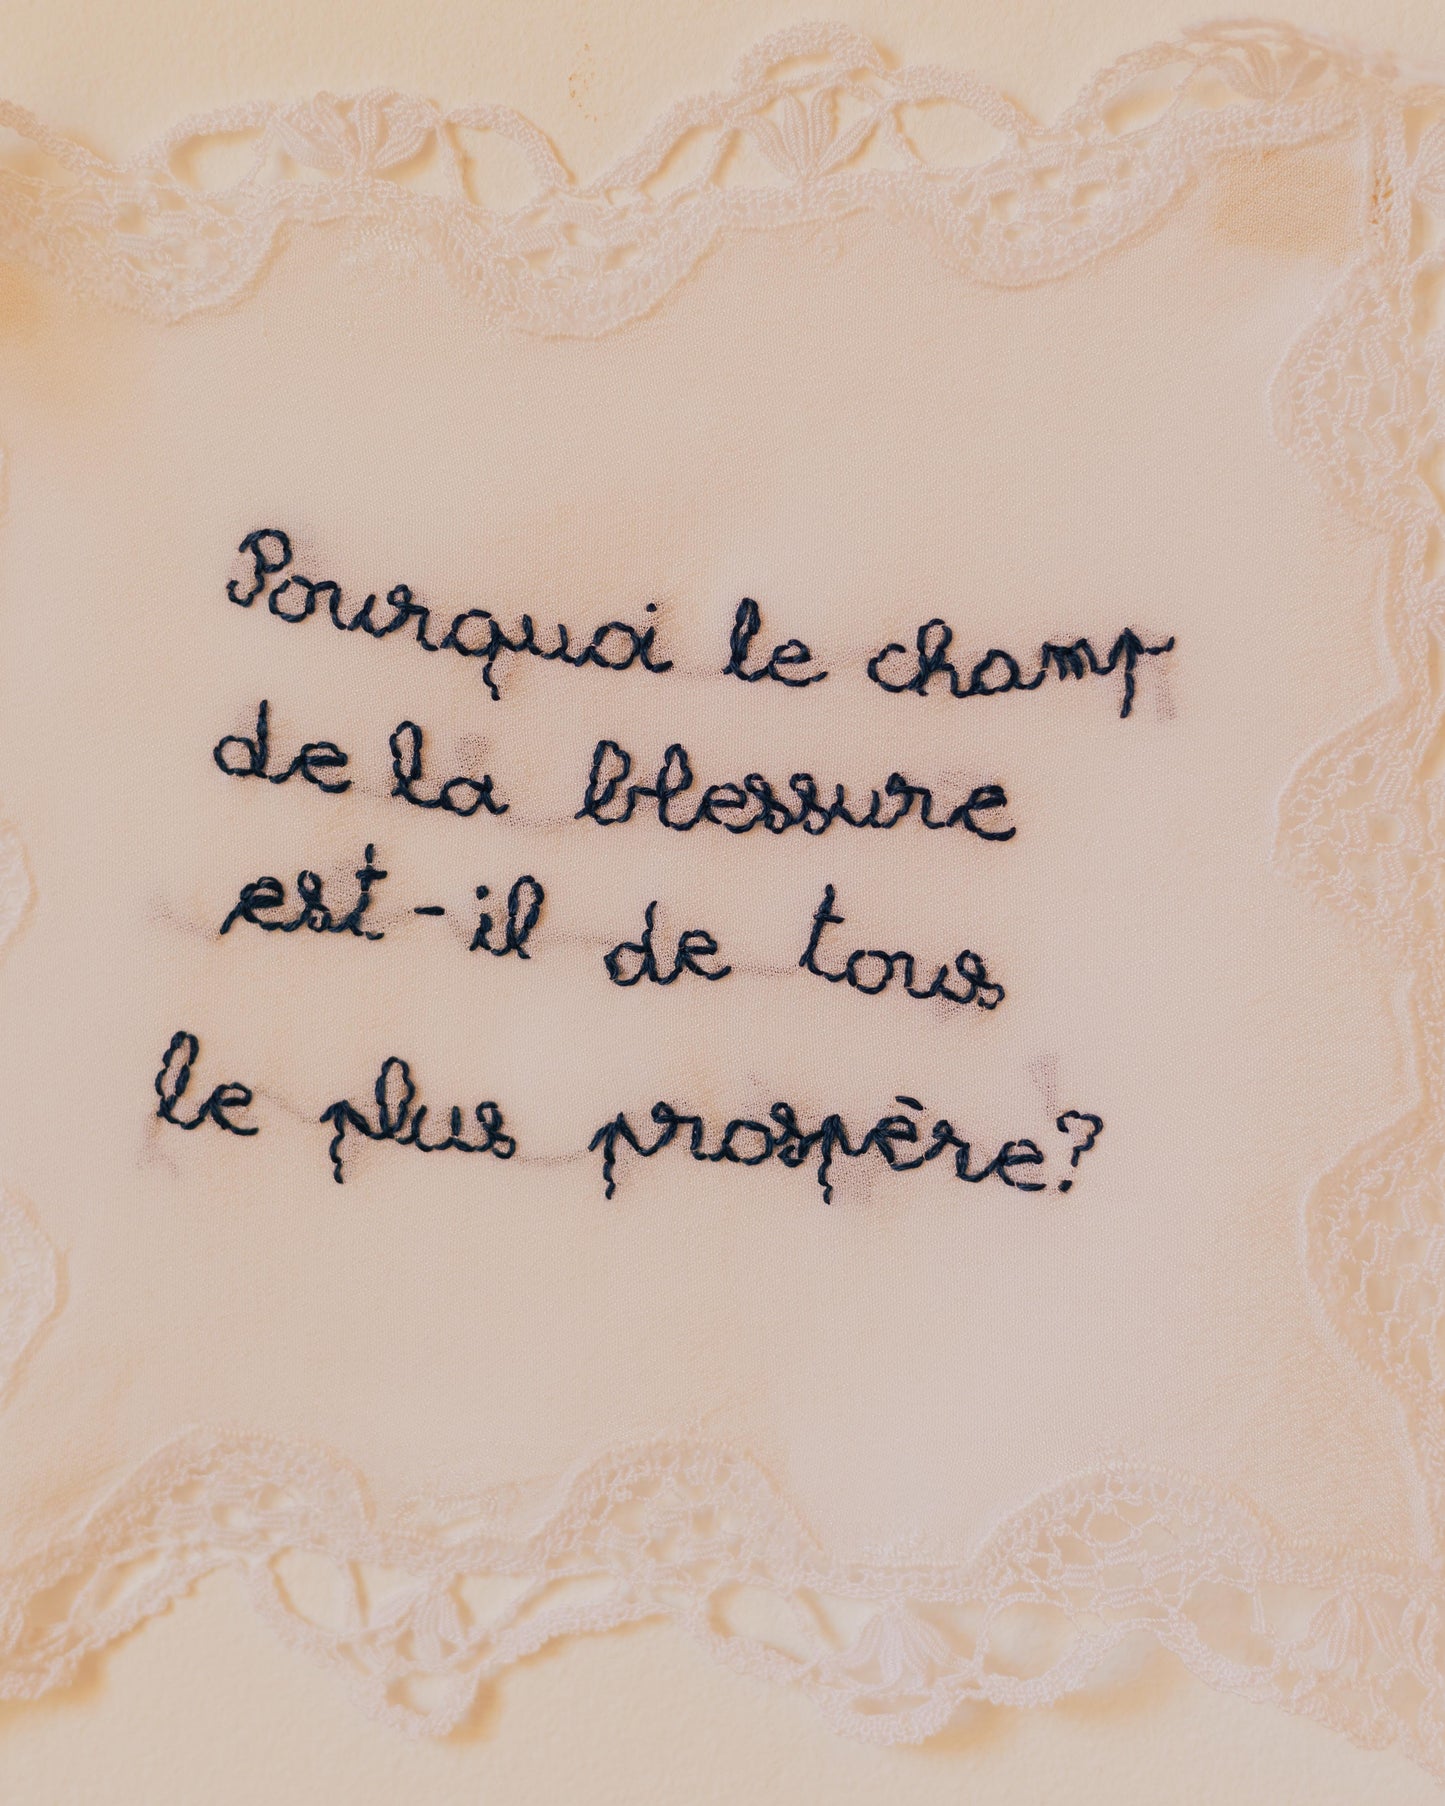 Pourquoi le champ
de la blessure
est-il de tous
le plus prospère?